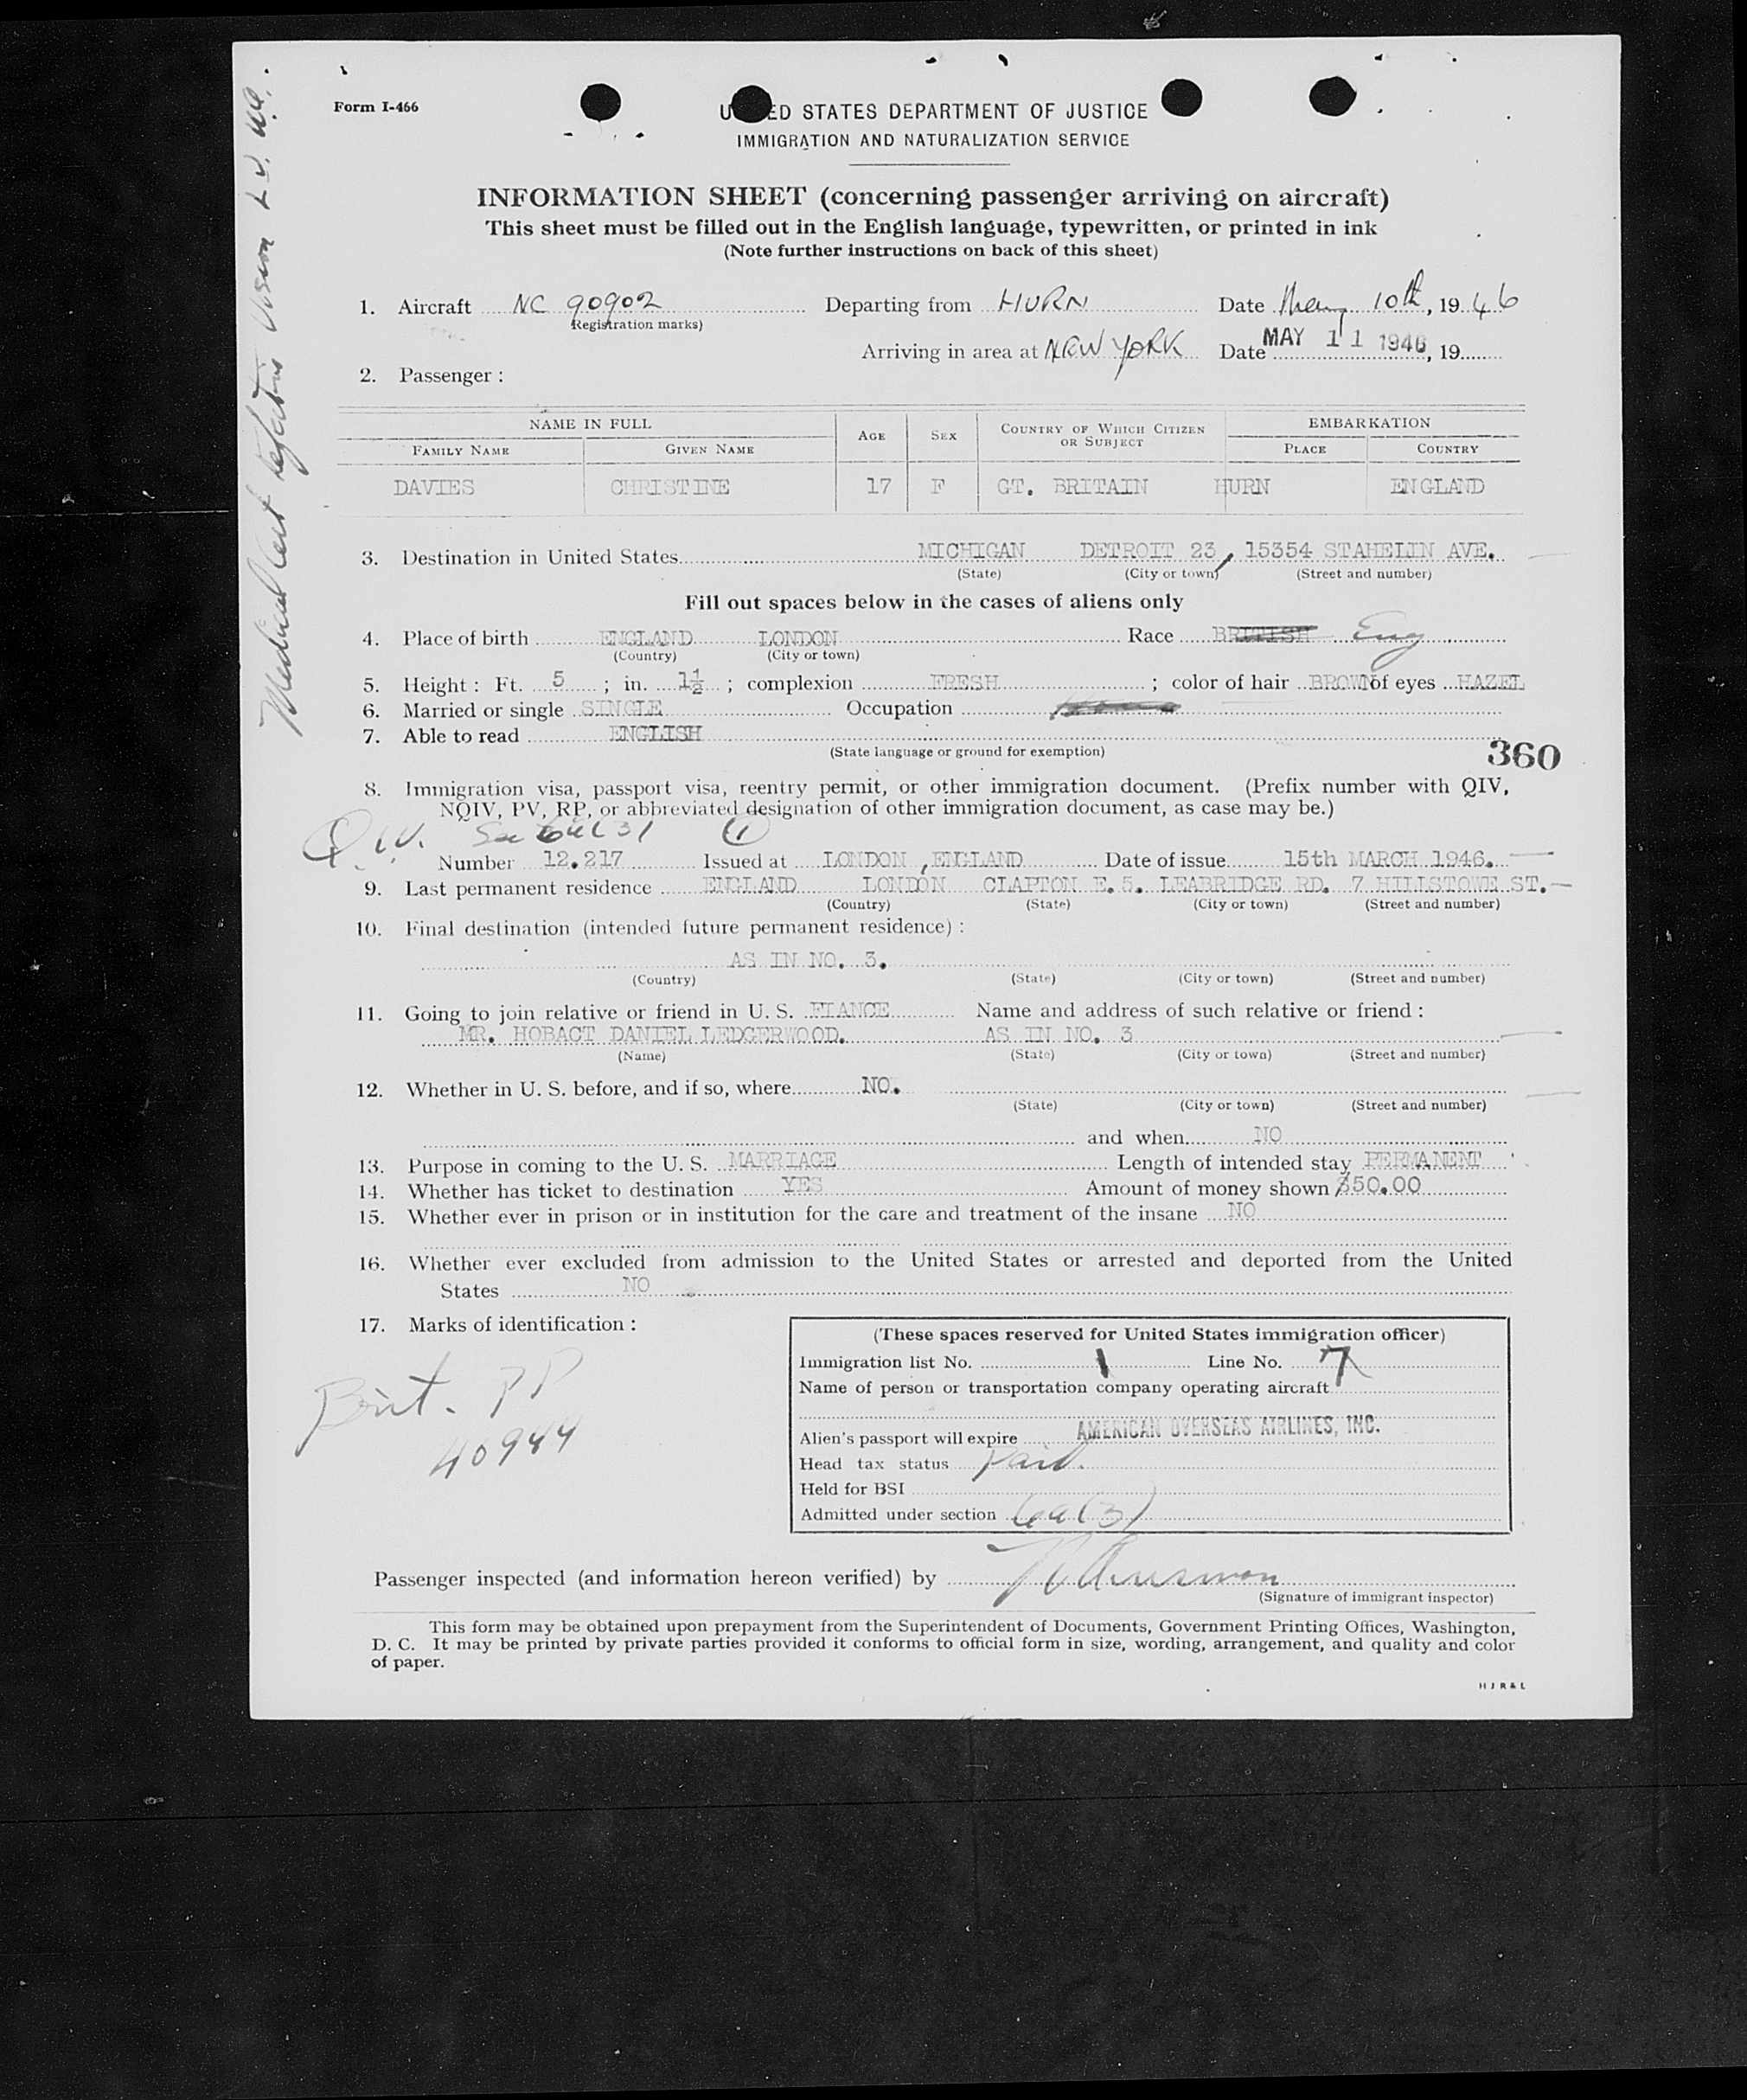 Form I-466
UNITED STATES DEPARTMENT OF JUSTICE
IMMIGRATION AND NATURALIZATION SERVICE
INFORMATION SHEET (concerning passenger arriving on aircraft)
This sheet must be filled out in the English language, typewritten, or printed in ink
(Note further instructions on back of this sheet)
1. Aircraft NC 90902 Departing from HURN Date May 10th, 1946
(Registration marks)
Arriving in area at NEW YORK Date MAY 11 1946, 19
2. Passenger :
NAME IN FULL AGE SEX COUNTRY OF WHICH CITIZEN OR SUBJECT EMBARKATION
FAMILY NAME GIVEN NAME PLACE COUNTRY
DAVIES CHRISTINE 17 F GT. BRITAIN HURN ENGLAND
3. Destination in United States MICHIGAN DETROIT 23, 15354 STAHELIN AVE.
(State) (City or town) (Street and number)
Fill out spaces below in the cases of aliens only
4. Place of birth ENGLAND LONDON Race BRITISH Eng
(Country) (City or town)
5. Height : Ft. 5 ; in. 1½ ; complexion FRESH ; color of hair BROWN of eyes HAZEL
6. Married or single SINGLE Occupation
7. Able to read ENGLISH
(State language or ground for exemption)
360
8. Immigration visa, passport visa, reentry permit, or other immigration document. (Prefix number with QIV,
NQIV, PV, RP, or abbreviated designation of other immigration document, as case may be.)
Q.I.V. Sec 6a(3)
Number 12.217 Issued at LONDON, ENGLAND Date of issue 15th MARCH 1946.
9. Last permanent residence ENGLAND LONDON CLAPTON E.5. LEABRIDGE RD. 7 HILLSTOWE ST.
(Country) (State) (City or town) (Street and number)
10. Final destination (intended future permanent residence) :
AS IN NO. 3.
(Country) (State) (City or town) (Street and number)
11. Going to join relative or friend in U. S. FIANCE Name and address of such relative or friend :
MR. HOBACT DANIEL LEDGERWOOD. AS IN NO. 3
(Name) (State) (City or town) (Street and number)
12. Whether in U. S. before, and if so, where NO.
(State) (City or town) (Street and number)
and when NO
13. Purpose in coming to the U. S. MARRIAGE Length of intended stay PERMANENT
14. Whether has ticket to destination YES Amount of money shown $50.00
15. Whether ever in prison or in institution for the care and treatment of the insane NO
16. Whether ever excluded from admission to the United States or arrested and deported from the United
States NO
17. Marks of identification :
Brit. PP
40944
(These spaces reserved for United States immigration officer)
Immigration list No. 1 Line No. 7
Name of person or transportation company operating aircraft
AMERICAN OVERSEAS AIRLINES, INC.
Alien's passport will expire
Head tax status Paid.
Held for BSI
Admitted under section 6a(3)
Passenger inspected (and information hereon verified) by
(Signature of immigrant inspector)
This form may be obtained upon prepayment from the Superintendent of Documents, Government Printing Offices, Washington,
D. C. It may be printed by private parties provided it conforms to official form in size, wording, arrangement, and quality and color
of paper.
H J R & L
Medical Cert defective Vision